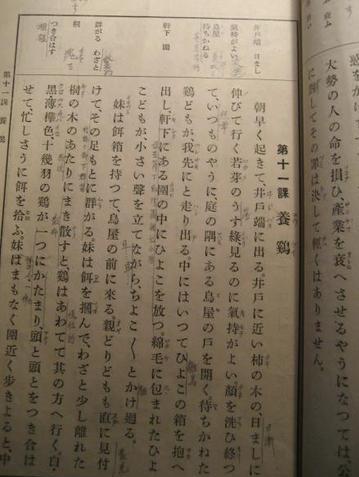 大勢の人の命を損ひ產業を衰へさせるやうになつては公
に對してその罪は決して輕くはありません。
第十一課 養鷄
井戸端 日まし
氣持がよい
鳥屋
待ちかねる
軒下 圍
群がる わざと
桐
つき合はす
朝早く起きて井戸端に出る。井戸に近い柿の木の、日ましに
伸びて行く若芽のうす綠見るのに氣持がよい。顏を洗ひ終つ
て、いつものやうに庭の隅にある鳥屋の戸を開く。待ちかねた
鷄どもが我先にと走り出る。中にはいつてひよこの箱を抱へ
出し、軒下にある圍の中にひよこを放つ。綿毛に包まれたひよ
こどもが、小さい聲を立てながらちよこ〱とかけ廻る。
妹は餌箱を持つて、鳥屋の前に來る。親どりどもも直に見付
けて、その足もとに群がる。妹は餌を摑んで、わざと少し離れた
桐の木のあたりにまき散すと、鷄はあわてて其の方へ行く。白・
黑・薄樺色、十幾羽の鷄が一つにかたまり、頭と頭とをつき合は
せて、忙しさうに餌を拾ふ。妹はまもなく圍近く步きよると、中
第十一課 養鷄